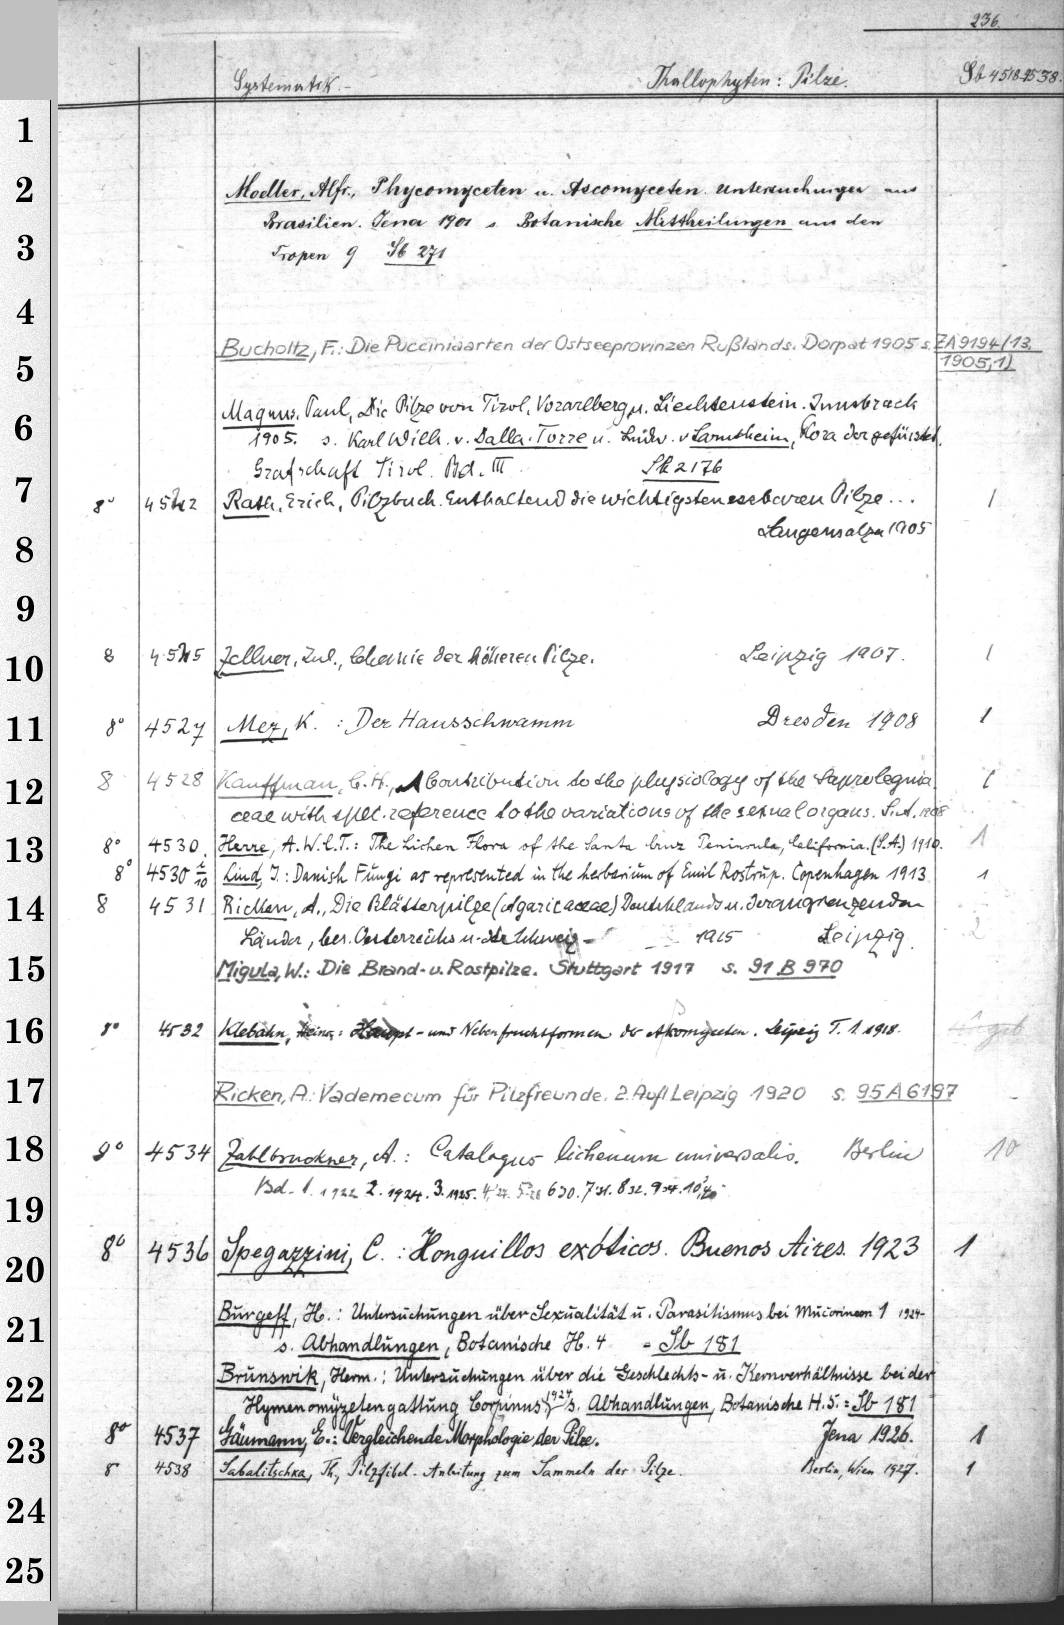 236.
Systematik.- Thallophyten: Pilze. Sb 4518-4538.
1
2
3
4
5
6
7
8
9
10
11
12
13
14
15
16
17
18
19
20
21
22
23
24
25
Moeller, Alfr., Phycomyceten u. Ascomyceten. Untersuchungen aus
Brasilien. Jena 1901 s. Botanische Mittheilungen aus den
Tropen 9 Sb 271
Bucholtz, F.: Die Pucciniaarten der Ostseeprovinzen Rußlands. Dorpat 1905 s. ZA 9194 (13,
1905,1)
Magnus, Paul, Die Pilze von Tirol, Vorarlberg u. Liechtenstein. Innsbruck
1905. s. Karl Wilh. v. Dalla-Torre u. Ludw. v Sarntheim, Flora der gefürstet.
Grafschaft Tirol. Bd. III Sk 2176
8° Rath, Erich, Pilzbuch. Enthaltend die wichtigsten essbaren Pilze ... 1
Langensalza 1905
8 4525 Zellner, Jul., Chemie der höheren Pilze. Leipzig 1907. 1
8° 4527 Mez, K. : Der Hausschwamm Dresden 1908 1
8 4528 Kauffman, C. H., A Contribution to the physiology of the Saprolegnia 1
ceae with spec. reference to the variations of the sexual organs. S.A. 1908
8° 4530. Herre, A. W. C. T.: The Lichen Flora of the Santa Cruz Peninsula, California. (S.A.) 1910. 1
8° 4530 Lind, J.: Danish Fungi as represented in the herbarium of Emil Rostrup. Copenhagen 1913 1
8 4531 Ricken, A., Die Blätterpilze (Agaricaceae) Deutschlands u. der angrenzenden
Länder, bes. Oesterreichs u. der Schweiz - 1915 Leipzig. 2
Migula, W.: Die Brand- u. Rostpilze. Stuttgart 1917 s. 91 B 970
8° 4532 Klebahn, Heinr.: Haupt- und Nebenfruchtformen der Askomyzeten. Leipzig T. 1. 1918.
Ricken, A.: Vademecum für Pilzfreunde. 2. Aufl Leipzig 1920 s. 95 A 6197
8° 4534 Zahlbruckner, A.: Catalogus lichenum universalis. Berlin 10
Bd. 1. 1922 2. 1924. 3. 1925. 4. 27. 5. 28 6 30. 7 31. 8 32. 9 34. 10, 40
8° 4536 Spegazzini, C. : Honguillos exóticos. Buenos Aires. 1923 1
Burgeff, H.: Untersuchungen über Sexualität u. Parasitismus bei Mucorineen 1 1924-
s. Abhandlungen, Botanische H. 4 = Sb 181
Brunswik, Herm.: Untersuchungen über die Geschlechts- u. Kernverhältnisse bei der
Hymenomyzetengattung Corpinus 1924 s. Abhandlungen, Botanische H. 5. = Sb 181
8° 4537 Gäumann, E.: Vergleichende Morphologie der Pilze. Jena 1926. 1
8° 4538 Sabalitschka, Th., Pilzfibel. Anleitung zum Sammeln der Pilze. Berlin, Wien 1927. 1